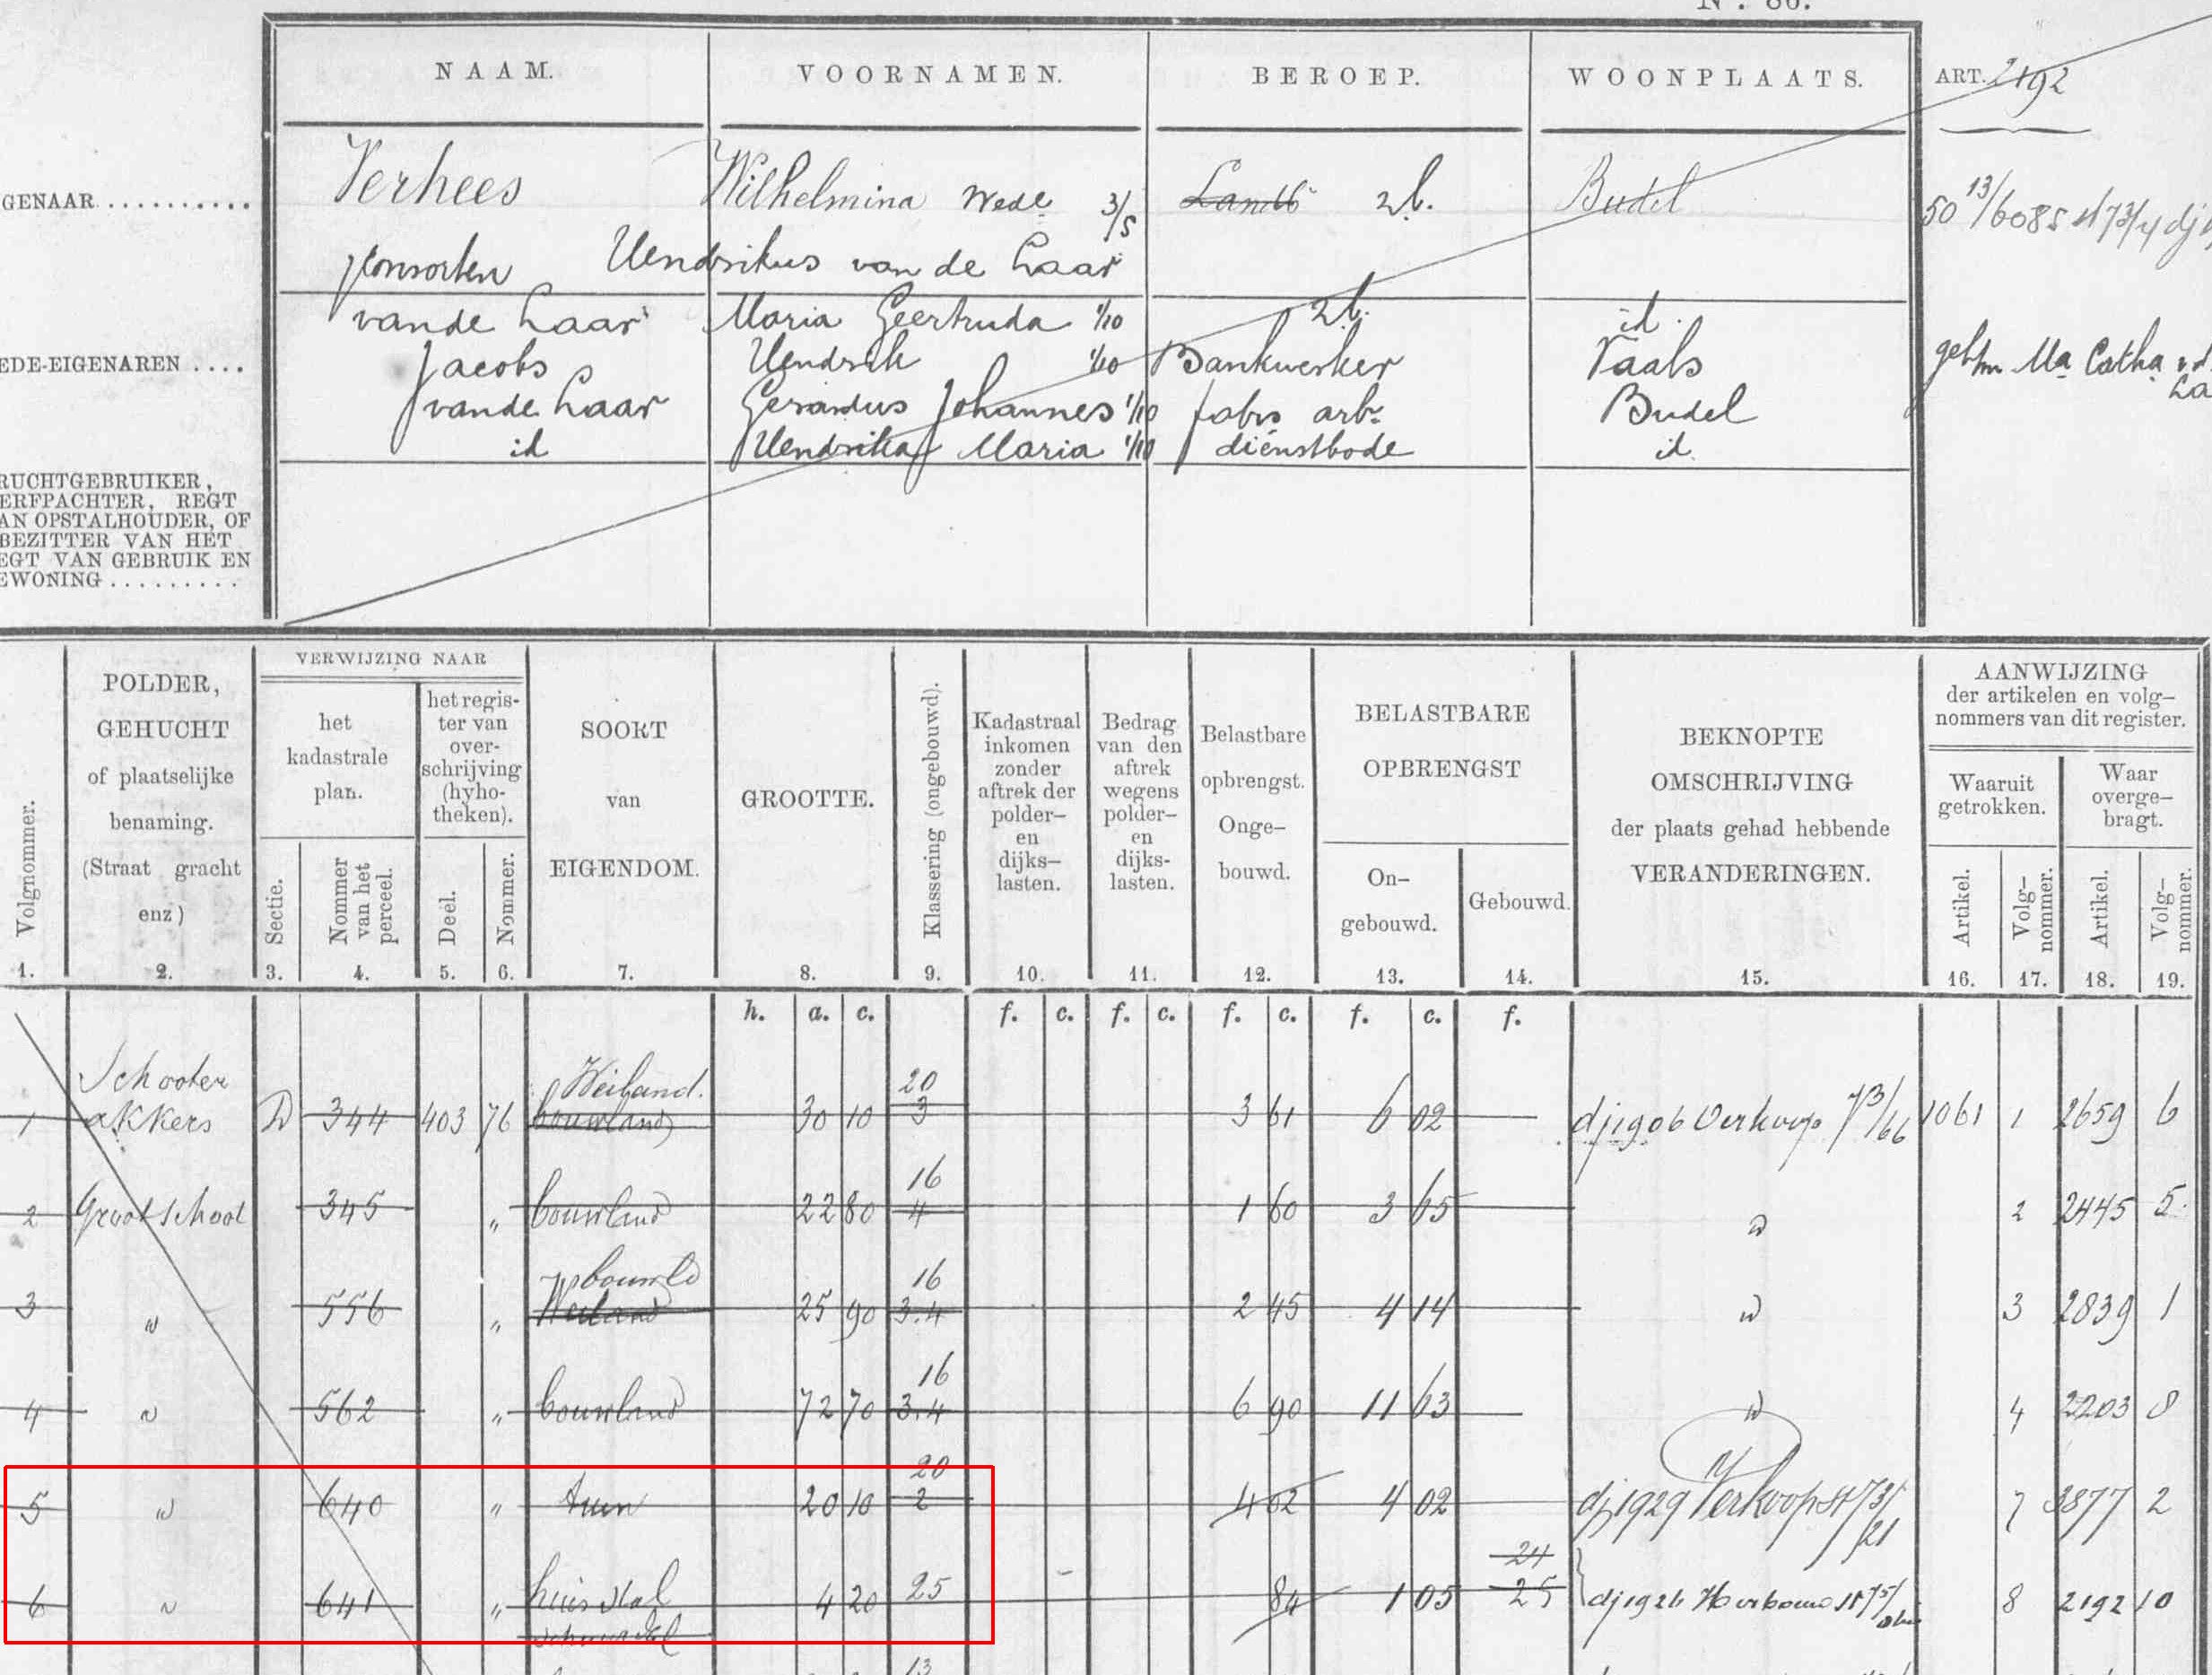 N°. 86.
NAAM. VOORNAMEN. BEROEP. WOONPLAATS. ART. 2192
GENAAR .......... Verhees Wilhelmina Wede 3/5 Landb zb. Budel
consorten Hendrikus van de Laar
van de Laar Maria Geertruda 1/10 zb. id.
EDE-EIGENAREN .... Jacobs Hendrik 1/10 Bankwerker Vaals gehm Ma Catha v d La
van de Laar Gerardus Johannes 1/10 fabrs arbr Budel
id Hendrika Maria 1/10 dienstbode id.
RUCHTGEBRUIKER,
ERFPACHTER, REGT
AN OPSTALHOUDER, OF
BEZITTER VAN HET
EGT VAN GEBRUIK EN
EWONING .........
Volgnommer.
POLDER,
GEHUCHT
of plaatselijke
benaming.
(Straat gracht
enz)
VERWIJZING NAAR
het
kadastrale
plan.
het regis-
ter van
over-
schrijving
(hyho-
theken).
Sectie.
Nommer
van het
perceel.
Deel.
Nommer.
SOORT
van
EIGENDOM.
GROOTTE.
Klassering (ongebouwd).
Kadastraal
inkomen
zonder
aftrek der
polder-
en
dijks-
lasten.
Bedrag
van den
aftrek
wegens
polder-
en
dijks-
lasten.
Belastbare
opbrengst.
Onge-
bouwd.
BELASTBARE
OPBRENGST
On-
gebouwd.
Gebouwd.
BEKNOPTE
OMSCHRIJVING
der plaats gehad hebbende
VERANDERINGEN.
AANWIJZING
der artikelen en volg-
nommers van dit register.
Waaruit
getrokken.
Waar
overge-
bragt.
Artikel.
Volg-
nommer.
Artikel.
Volg-
nommer.
1. 2. 3. 4. 5. 6. 7. 8. 9. 10. 11. 12. 13. 14. 15. 16. 17. 18. 19.
h. a. c. f. c. f. c. f. c. f. c. f.
Schooter Weiland. 20
1 akkers D 344 403 76 bouwland 30 10 3 3 61 6 02 dj 1906 Verkoop 73/66 1061 1 2659 6
16
2 Groot schoot 345 " bouwland 22 80 4 1 60 3 65 " 2 2445 5
bouwld 16
3 " 556 " Weiland 25 90 3.4 2 45 4 14 " 3 2839 1
16
4 " 562 " bouwland 72 70 3.4 6 90 11 63 " 4 2203 8
20
5 " 640 " tuin 20 10 2 4 02 4 02 dj 1929 Verkoop st 73/21 7 3877 2
24
6 " 641 " huis stal 4 20 25 84 1 05 25 dj 1926 Herbouw st 75/ 8 2192 10
schuur
13